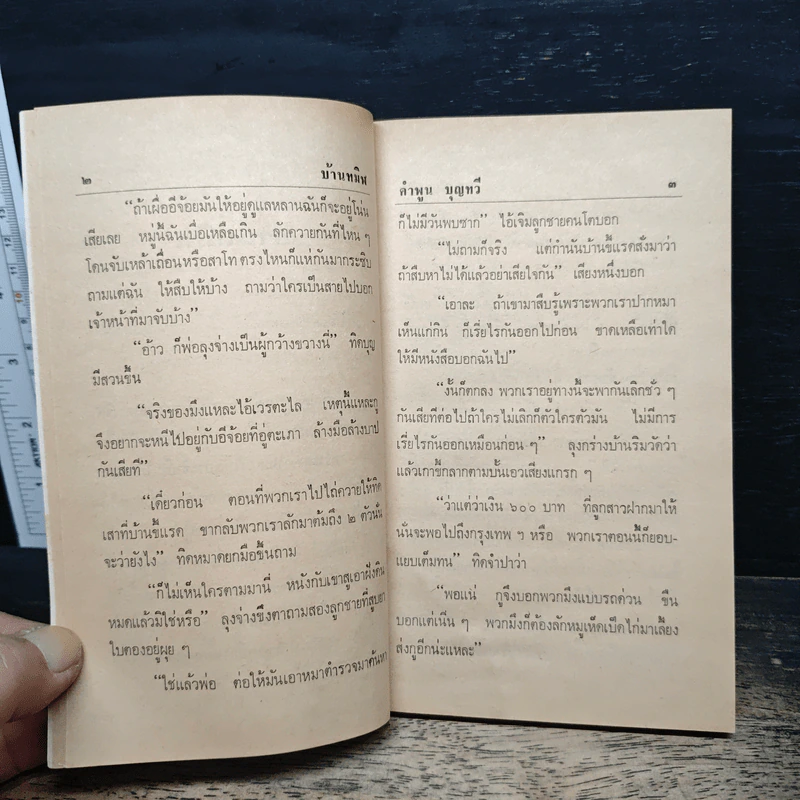 ๒ บ้านทมิฬ
“ถ้าเผื่ออีจ้อยมันให้อยู่ดูแลหลานฉันก็จะอยู่โน่น
เสียเลย หมู่นี้ฉันเบื่อเหลือเกิน ลักควายกันที่ไหน ๆ
โดนจับเหล้าเถื่อนหรือสาโท ตรงไหนก็แห่กันมากระซิบ
ถามแต่ฉัน ให้สืบให้บ้าง ถามว่าใครเป็นสายไปบอก
เจ้าหน้าที่มาจับบ้าง”
“อ้าว ก็พ่อลุงจ่างเป็นผู้กว้างขวางนี่” ทิดบุญ
มีสวนขึ้น
“จริงของมึงแหละไอ้เวรตะไล เหตุนี้แหละกู
จึงอยากจะหนีไปอยู่กับอีจ้อยที่อู่ตะเภา ล้างมือล้างบาป
กันเสียที”
“เดี๋ยวก่อน ตอนที่พวกเราไปไถ่ควายให้ทิด
เสาที่บ้านขี้แรด ขากลับพวกเราลักมาต้มถึง ๒ ตัวนั่น
จะว่ายังไง” ทิดหมาดยกมือขึ้นถาม
“ก็ไม่เห็นใครตามมานี่ หนังกับเขาสูเอาฝังดิน
หมดแล้วมิใช่หรือ” ลุงจ่างขึงตาถามสองลูกชายที่สูบยา
ใบตองอยู่ผุย ๆ
“ใช่แล้วพ่อ ต่อให้มันเอาหมาตำรวจมาค้นหา
คำพูน บุญทวี ๓
ก็ไม่มีวันพบซาก” ไอ้เจิมลูกชายคนโตบอก
“ไม่ถามก็จริง แต่กำนันบ้านขี้แรดสั่งมาว่า
ถ้าสืบหาไม่ได้แล้วอย่าเสียใจกัน” เสียงหนึ่งบอก
“เอาละ ถ้าเขามาสืบรู้เพราะพวกเราปากหมา
เห็นแก่กิน ก็เรี่ยไรกันออกไปก่อน ขาดเหลือเท่าใด
ให้มีหนังสือบอกฉันไป”
“งั้นก็ตกลง พวกเราอยู่ทางนี้จะพากันเลิกชั่ว ๆ
กันเสียที่ต่อไปถ้าใครไม่เลิกก็ตัวใครตัวมัน ไม่มีการ
เรี่ยไรกันออกเหมือนก่อน ๆ” ลุงกร่างบ้านริมวัดว่า
แล้วเกาขี้กลากตามบั้นเอวเสียงแกรก ๆ
“ว่าแต่ว่าเงิน ๖๐๐ บาท ที่ลูกสาวฝากมาให้
นั่นจะพอไปถึงกรุงเทพ ฯ หรือ พวกเราตอนนี้ก็ยอบ-
แยบเต็มทน” ทิดจำปาว่า
“พอแน่ กูจึงบอกพวกมึงแบบรถด่วน ขืน
บอกแต่เนิ่น ๆ พวกมึงก็ต้องลักหมูเห็ดเป็ดไก่มาเลี้ยง
ส่งกูอีกน่ะแหละ”